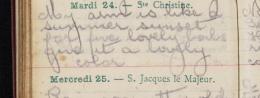 Mardi 24. — Ste Christine.
My aim is like a
summer sunset
for five lovely
give it a lovely
color
Mercredi 25. — S. Jacques le Majeur.